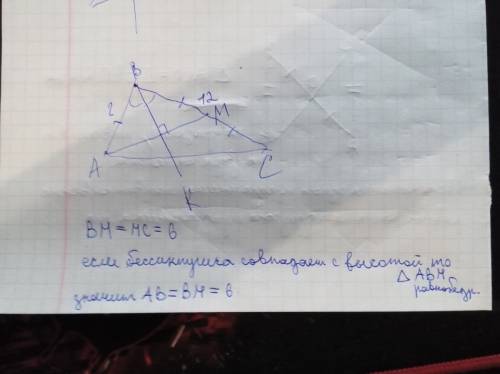 B
?
12
M
A
C
K
BM = MC = 6
если бессиктриса совпадает с высотой то
△ ABM
равнобедр.
значит AB = BM = 6